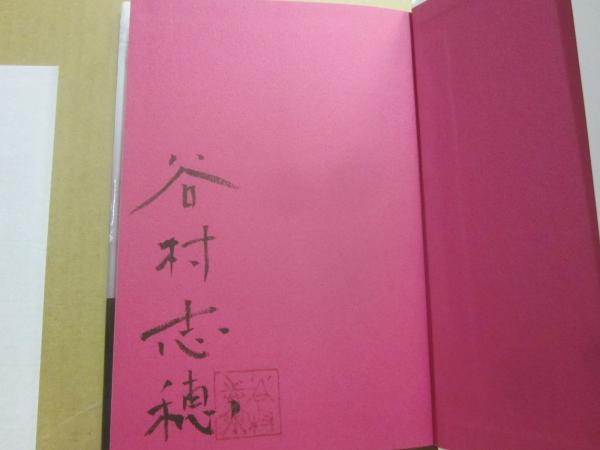 谷村志穂
谷村
志穂